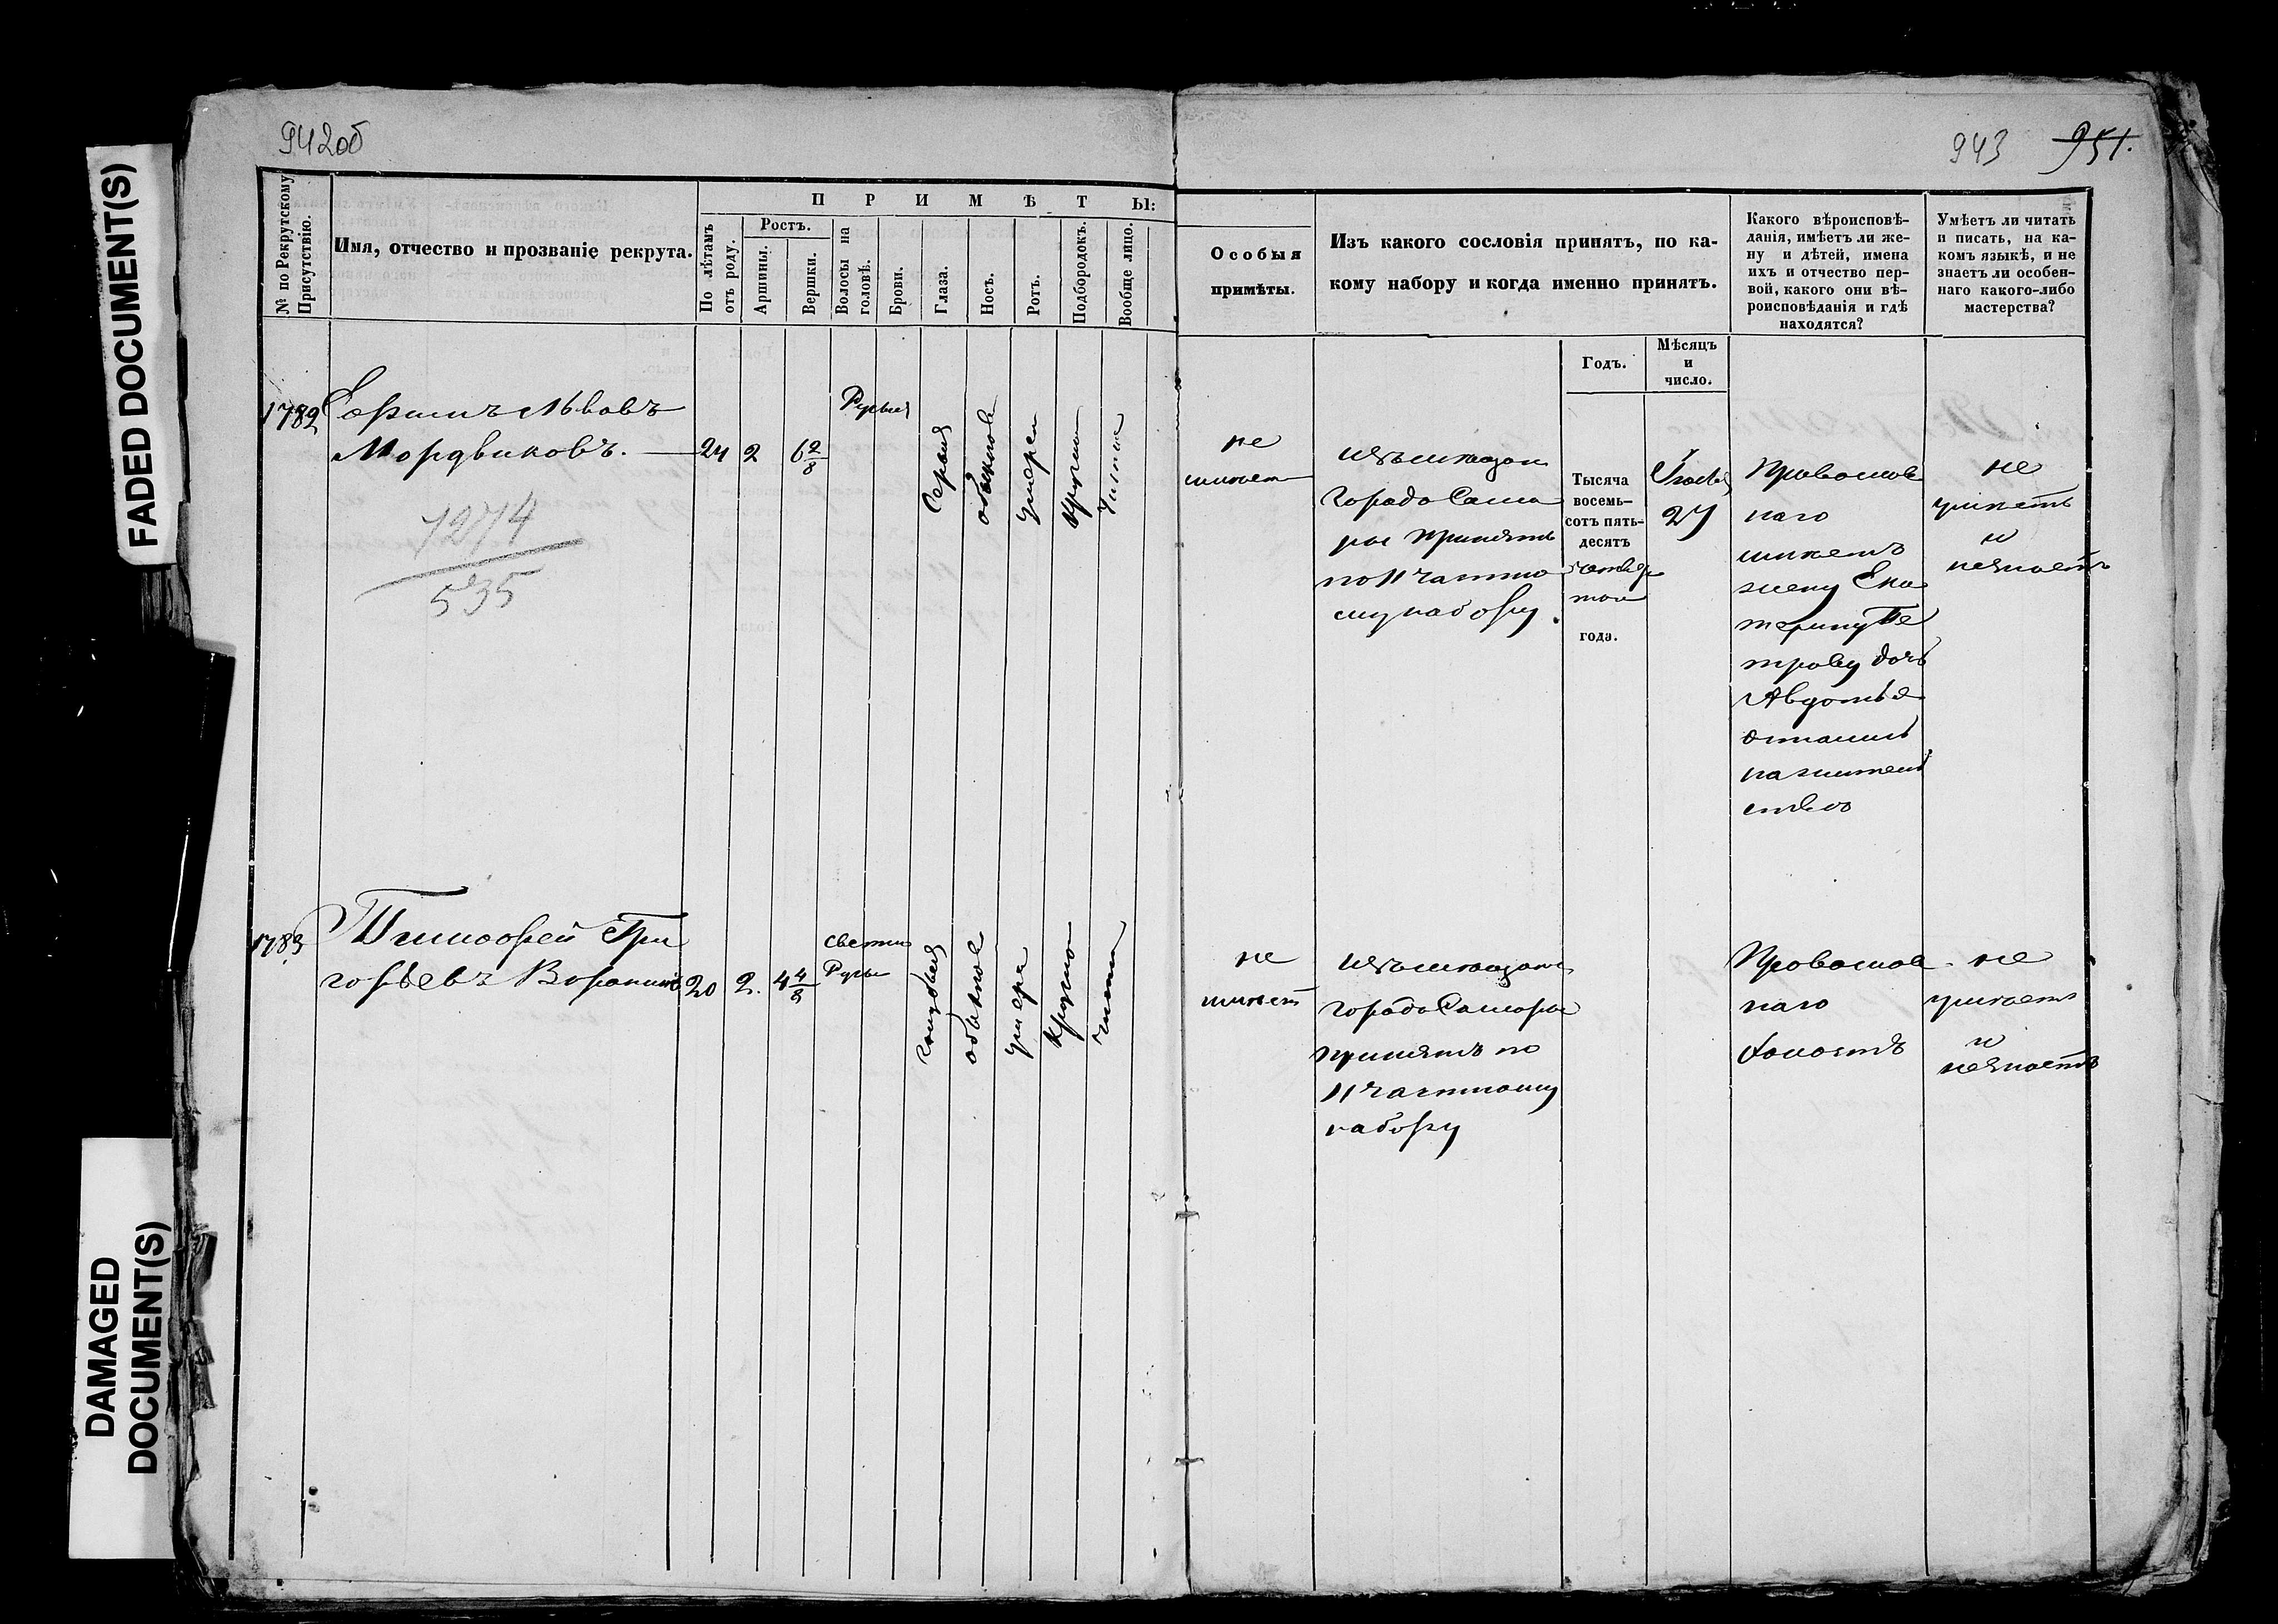 FADED DOCUMENT(S)
DAMAGED
DOCUMENT(S)
942об
943 951.
№ по Рекрутскому
Присутствію.
Имя, отчество и прозваніе рекрута.
П Р И М Ѣ Т Ы:
По лѣтамъ
отъ роду.
Ростъ.
Аршины.
Вершки.
Волосы на
головѣ.
Брови.
Глаза.
Носъ.
Ротъ.
Подбородокъ.
Вообще лицо.
Особыя
примѣты.
Изъ какого сословія принятъ, по ка-
кому набору и когда именно принятъ.
Годъ.
Мѣсяцъ
и
число.
Какого вѣроисповѣ-
данія, имѣетъ ли же-
ну и дѣтей, имена
ихъ и отчество пер-
вой, какого они вѣ-
роисповѣданія и гдѣ
находятся?
Умѣетъ ли читать
и писать, на ка-
комъ языкѣ, и не
знаетъ ли особен-
наго какого-либо
мастерства?
1782
Львовъ
Мордвиковъ.
24 2 6 2/8
Русыя
Серыя
обыкнове
умерен
кругло
чистое
не
имеет
изъ мещан
города Сама
ры принятъ
по 11 частно
му набору.
Тысяча
восемь-
сотъ пять-
десятъ
четвер
таго
года.
27
Православ
наго
имеетъ
жену Ека
терину Пе
трову дочь
Авдотья
на жительс
ство
не
умеетъ
и
незнаетъ
7274
535
1783
Тимофей Гри
горьевъ Воронинъ
20 2. 4 4/8
светло
Русы
голубыя
обыкное
умере
кругло
чисто
не
имеет
изъ мещане
города Самары
принятъ по
11 частному
набору
Православ
наго
холостъ
не
умеетъ
и
незнаетъ